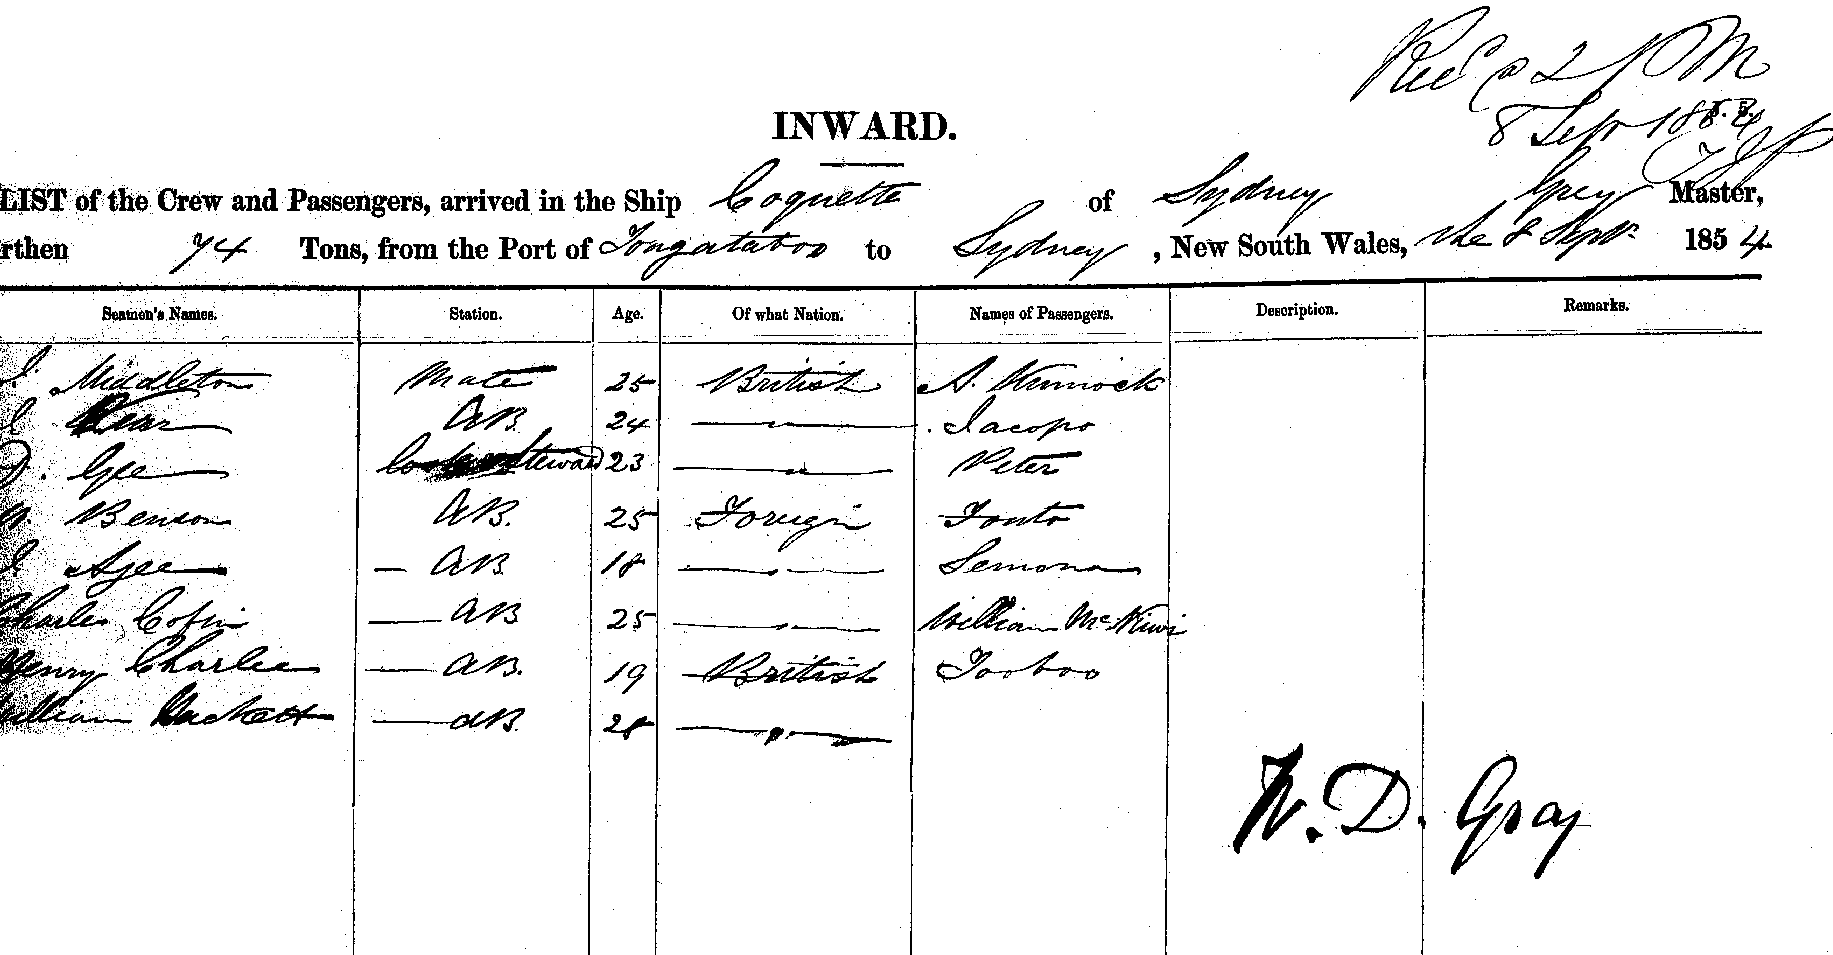 Recd @ 2 PM
8 Sept 1854
INWARD.
LIST of the Crew and Passengers, arrived in the Ship Coquette of Sydney Grey Master,
rthen 74 Tons, from the Port of Tongataboo to Sydney, New South Wales, the 8 Sepr. 1854
Seamen's Names. Station. Age. Of what Nation. Names of Passengers. Description. Remarks.
Middleton Mate 25 British A.
AB. 24 — " — Jacopo
Gee Cook Steward 23 — " — Peter
Benson AB. 25 Foreign
— AB. 18 — " — Semona
Charles Cofin — AB 25 — " — William
Henry Charles — AB. 19 British Tooboo
William Hackett — AB. 28 — " —
W. D. Gray